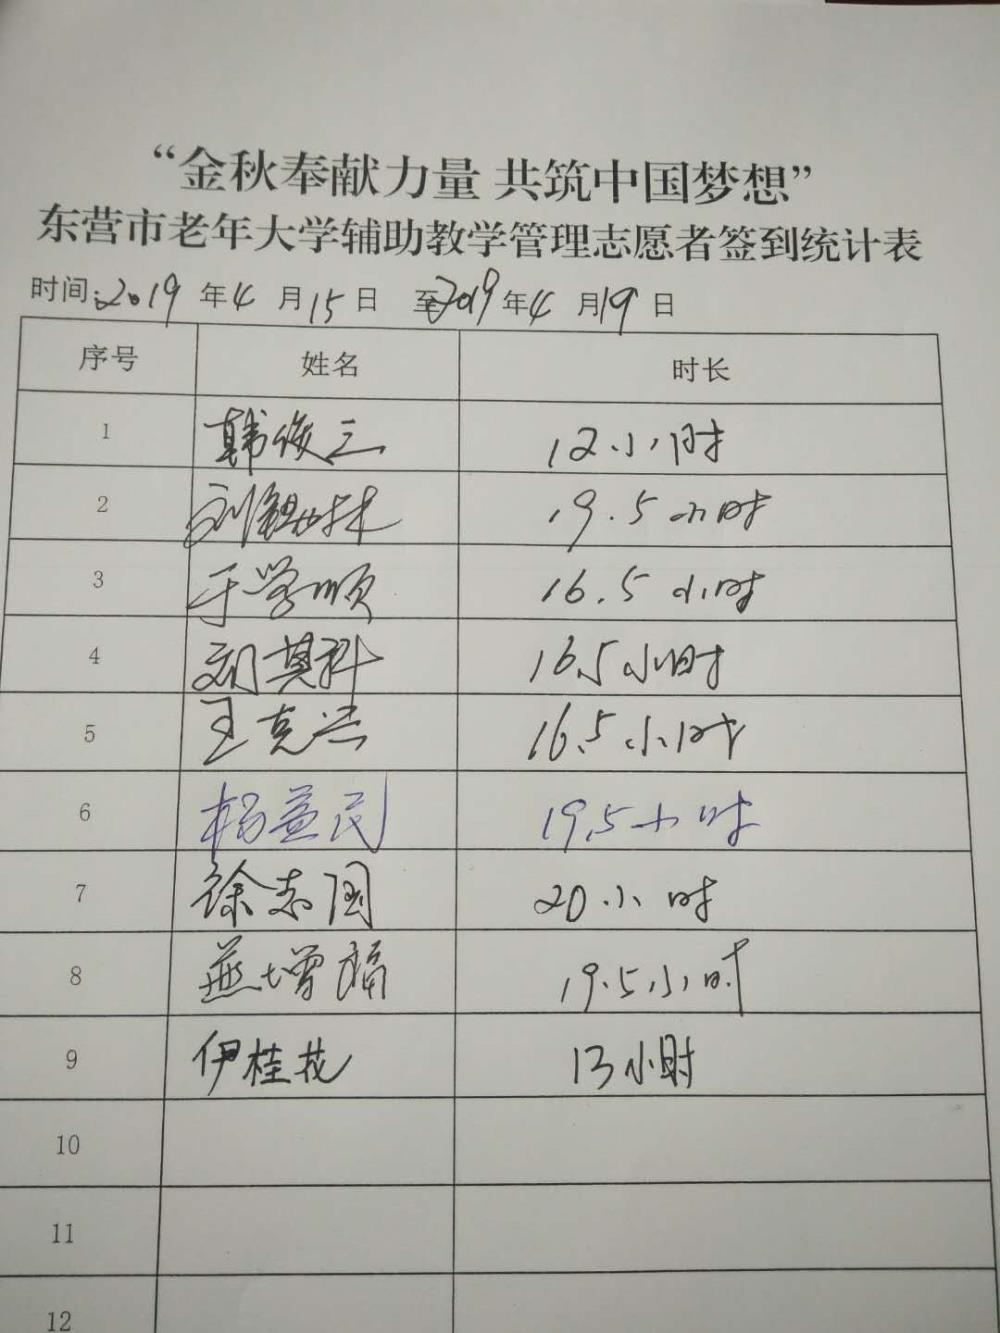 “金秋奉献力量 共筑中国梦想”
东营市老年大学辅助教学管理志愿者签到统计表
时间:2019 年 4 月 15 日 至 2019 年 4 月 19 日
序号 姓名 时长
1 韩俊三 12小时
2 19.5小时
3 于学顺 16.5小时
4 刘其科 16.5小时
5 王克兴 16.5小时
6 杨益民 19.5小时
7 徐志国 20小时
8 燕增福 19.5小时
9 伊桂花 13小时
10
11
12